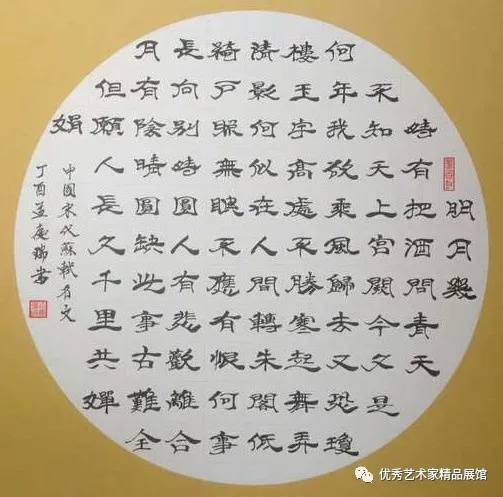 明月幾
時有把酒問青天
不知天上宮闕今夕是
何年我欲乘風歸去又恐瓊
樓玉宇高處不勝寒起舞弄
清影何似在人間轉朱閣低
綺戶照無眠不應有恨何事
長向別時圓人有悲歡離合
月有陰晴圓缺此事古難全
但願人長久千里共嬋
娟
中國宋代蘇軾文
丁酉孟慶瑞書
优秀艺术家精品展馆